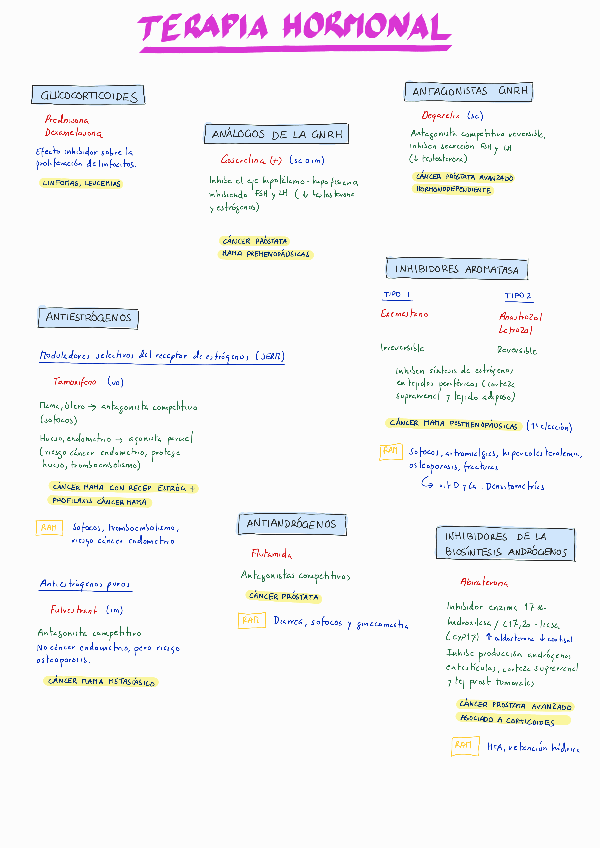 TERAPIA HORMONAL
GLUCOCORTICOIDES
Prednisona
Dexametasona
Efecto inhibidor sobre la
proliferación de linfocitos.
LINFOMAS, LEUCEMIAS
ANÁLOGOS DE LA GNRH
Goserelina (+) (sc o im)
Inhibe el eje hipotálamo-hipofisario,
inhibiendo FSH y LH (↓ testosterona
y estrógenos)
CÁNCER PRÓSTATA
MAMA PREMENOPÁUSICAS
ANTAGONISTAS GNRH
Degarelix (sc)
Antagonista competitivo reversible,
inhiben secreción FSH y LH
(↓ testosterona)
CÁNCER PRÓSTATA AVANZADO
HORMONODEPENDIENTE
INHIBIDORES AROMATASA
TIPO 1 TIPO 2
Exemestano Anastrozol
Letrozol
Irreversible Reversible
Inhiben síntesis de estrógenos
en tejidos periféricos (corteza
suprarrenal y tejido adiposo)
CÁNCER MAMA POSTMENOPÁUSICAS (1ª elección)
RAM Sofocos, artromialgias, hipercolesterolemia,
osteoporosis, fracturas
↳ vit D y Ca. Densitometrías
ANTIESTRÓGENOS
Moduladores selectivos del receptor de estrógenos (SERM)
Tamoxifeno (vo)
Mama, útero → antagonista competitivo
(sofocos)
Hueso, endometrio → agonista parcial
(riesgo cáncer endometrio, protege
hueso, tromboembolismo)
CÁNCER MAMA CON RECEP ESTRÓG +
PROFILAXIS CÁNCER MAMA
RAM Sofocos, tromboembolismo,
riesgo cáncer endometrio
Antiestrógenos puros
Fulvestrant (im)
Antagonista competitivo
No cáncer endometrio, pero riesgo
osteoporosis.
CÁNCER MAMA METASTÁSICO
ANTIANDRÓGENOS
Flutamida
Antagonistas competitivos
CÁNCER PRÓSTATA
RAM Diarrea, sofocos y ginecomastia
INHIBIDORES DE LA
BIOSÍNTESIS ANDRÓGENOS
Abiraterona
Inhibidor enzima 17 α-
hidroxilasa / C17,20-liasa
(CYP17) ↑ aldosterona ↓ cortisol
Inhibe producción andrógenos
en testículos, corteza suprarrenal
y tej prost tumorales
CÁNCER PRÓSTATA AVANZADO
ASOCIADO A CORTICOIDES
RAM HTA, retención hídrica